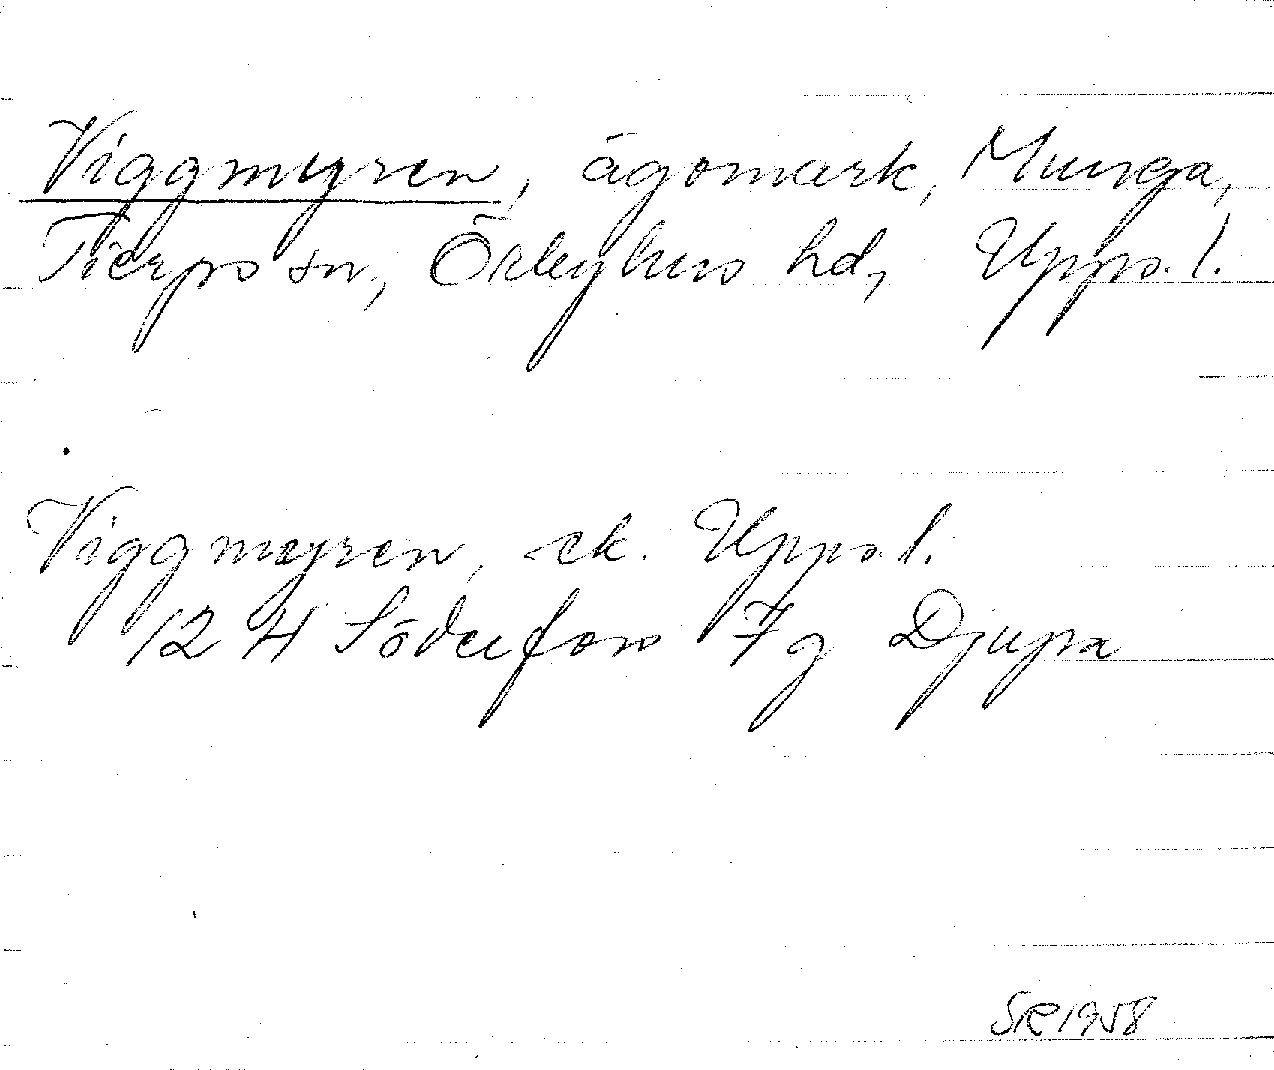 Viggmyren, ägomark, Munga,
Tierps sn, Örbyhus hd, Upps. l.
Viggmyren, ek. Upps l.
12 H Söderfors 7 g Djupa
SR 1958